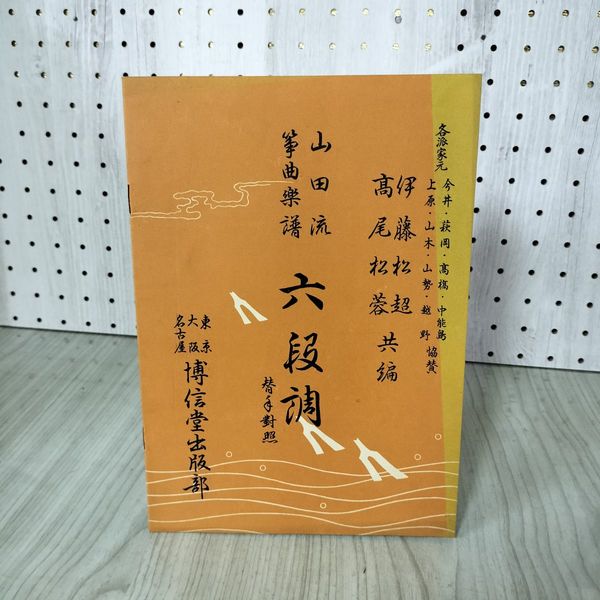 各派家元
今井・萩岡・高橋・中能島
上原・山木・山勢・越野
協賛
伊藤松超
高尾松蓉
共編
山田流
箏曲楽譜
六段調
替手對照
東京
大阪
名古屋
博信堂出版部